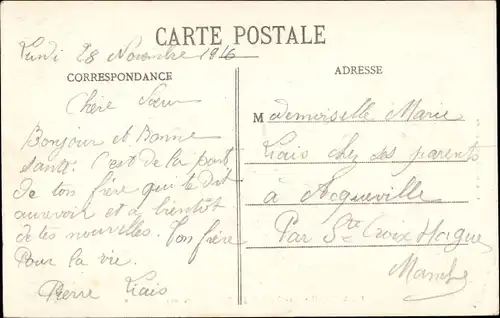 CARTE POSTALE
Lundi 28 Novembre 1916
CORRESPONDANCE
ADRESSE
Chère Sœur
Bonjour et Bonne
santé. C'est de la part
de ton frère qui te dit
aurevoir et a bientôt
de tes nouvelles. Ton frère
Pour la vie.
Pierre Liais
Mademoiselle Marie
Liais chez ses parents
à Acqueville
Par Ste Croix Hague
Manche